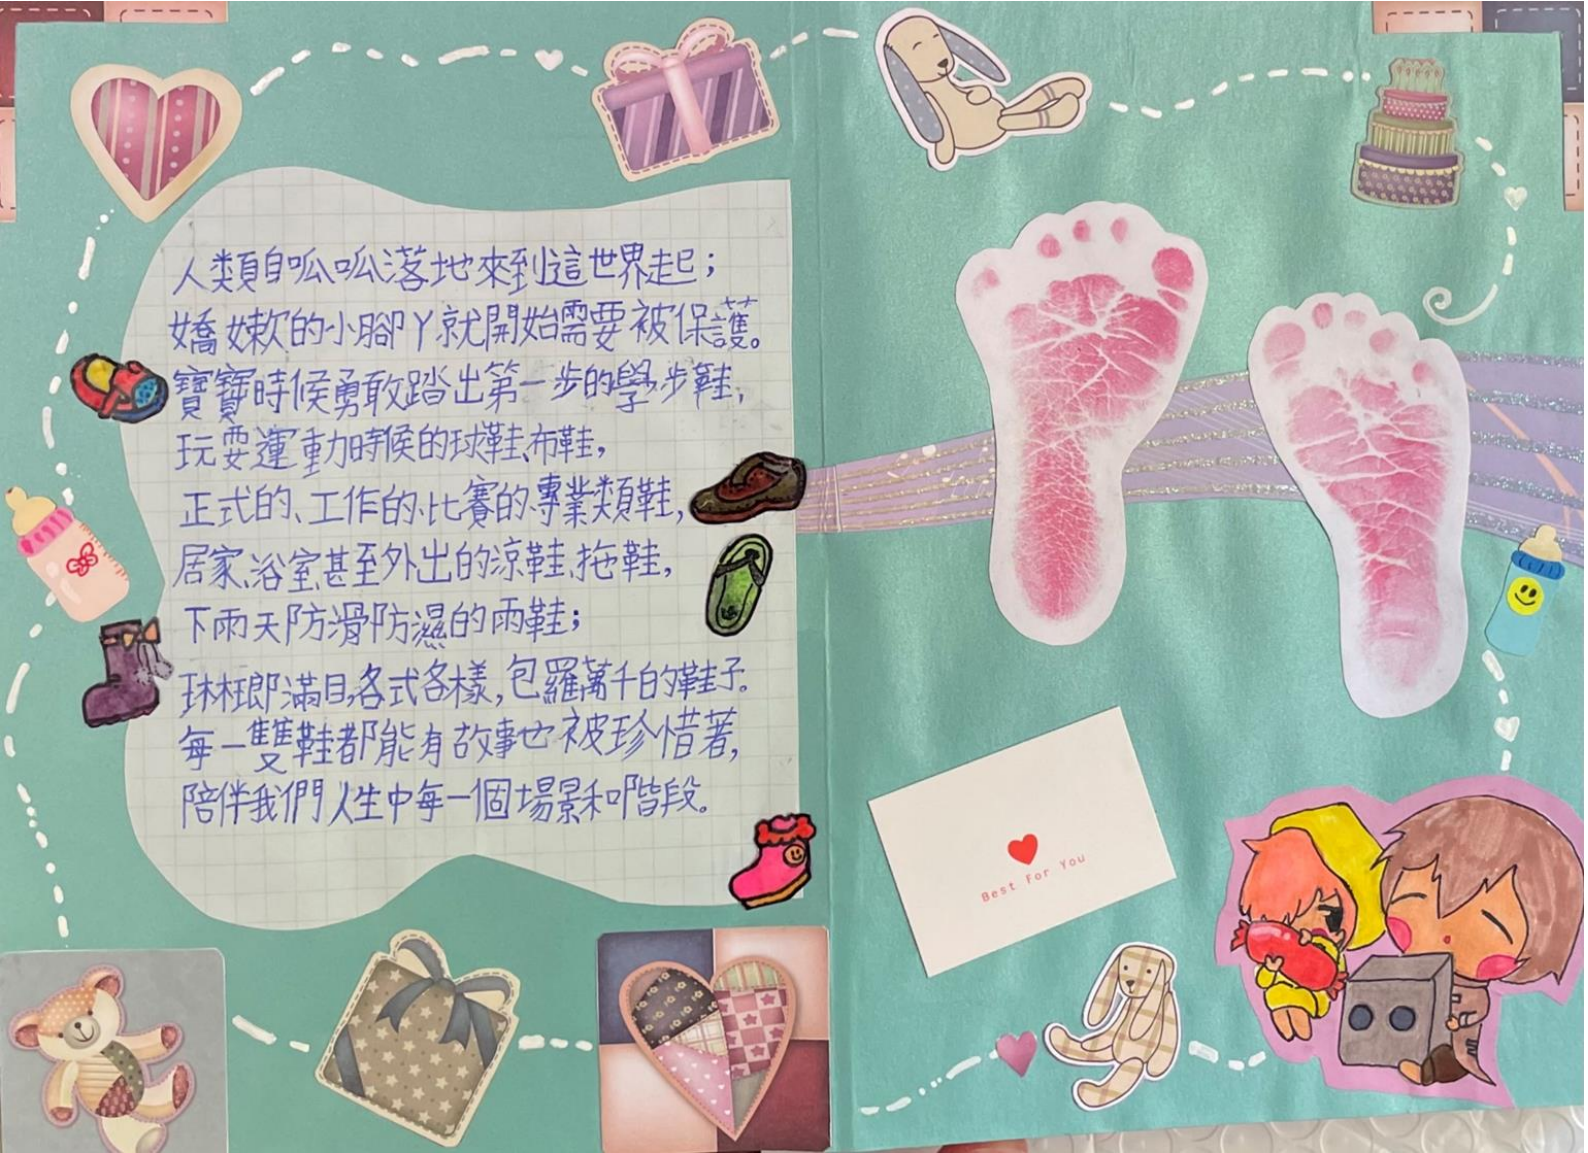 人類自呱呱落地來到這世界起；
嬌嫩的小腳丫就開始需要被保護。
寶寶時候勇敢踏出第一步的學步鞋，
玩耍運動時候的球鞋、布鞋，
正式的、工作的、比賽的、專業類鞋，
居家、浴室、甚至外出的涼鞋、拖鞋，
下雨天防滑防濕的雨鞋；
琳琅滿目，各式各樣，包羅萬千的鞋子。
每一雙鞋都能有故事也被珍惜著，
陪伴我們人生中每一個場景和階段。
Best For You